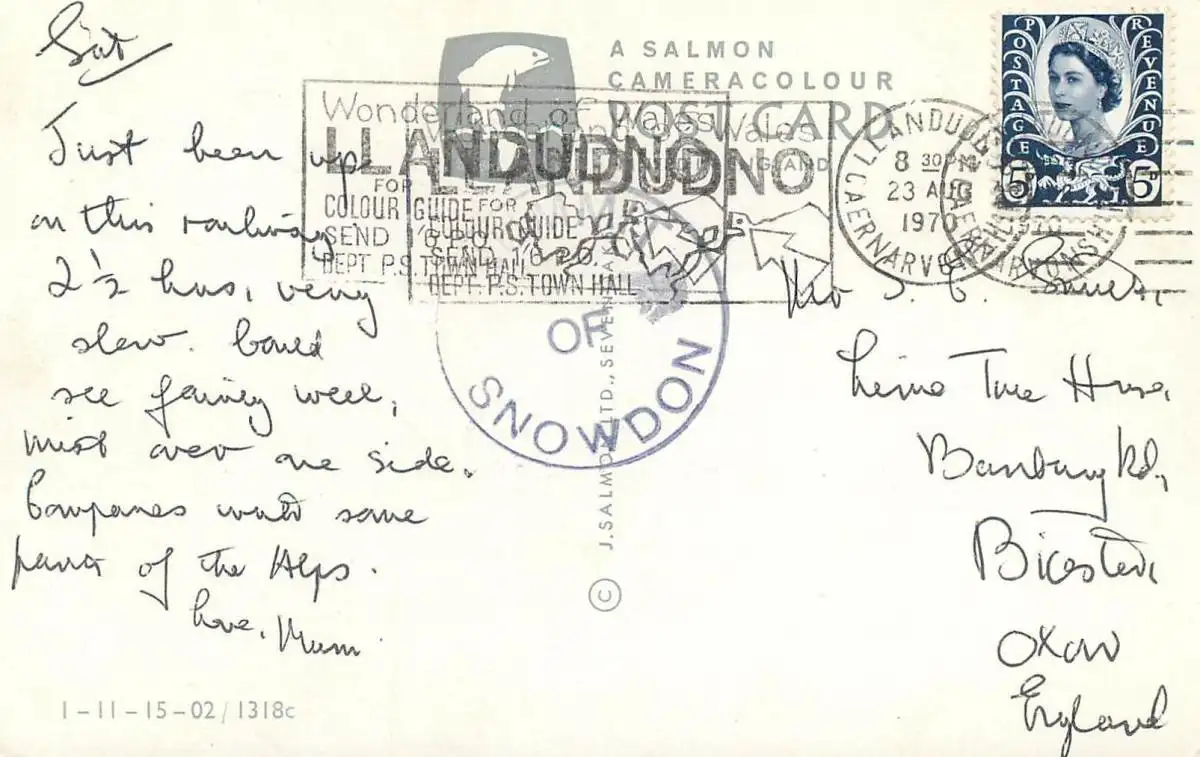 Sat
Just been up
on this railway
2½ hrs, very
slow. Could
see fairly well,
mist over one side.
Compares with some
parts of the Alps.
Love, Mum
1-11-15-02/1318c
A SALMON
CAMERACOLOUR
POST CARD
J. SALMON LTD., SEVENOAKS
©
OF
SNOWDON
Wonderland of Wales
LLANDUDNO
FOR
COLOUR GUIDE
SEND 1/6 P.O.
DEPT P.S. TOWN HALL
Wales
LLANDUDNO
FOR
COLOUR GUIDE
SEND 1/6 P.O.
DEPT P.S. TOWN HALL
LLANDUDNO
8 30PM
23 AUG
1970
CAERNARVONSHIRE
POSTAGE
REVENUE
5D 5D
Lime Tree House,
Banbury Rd,
Bicester,
OXON
England